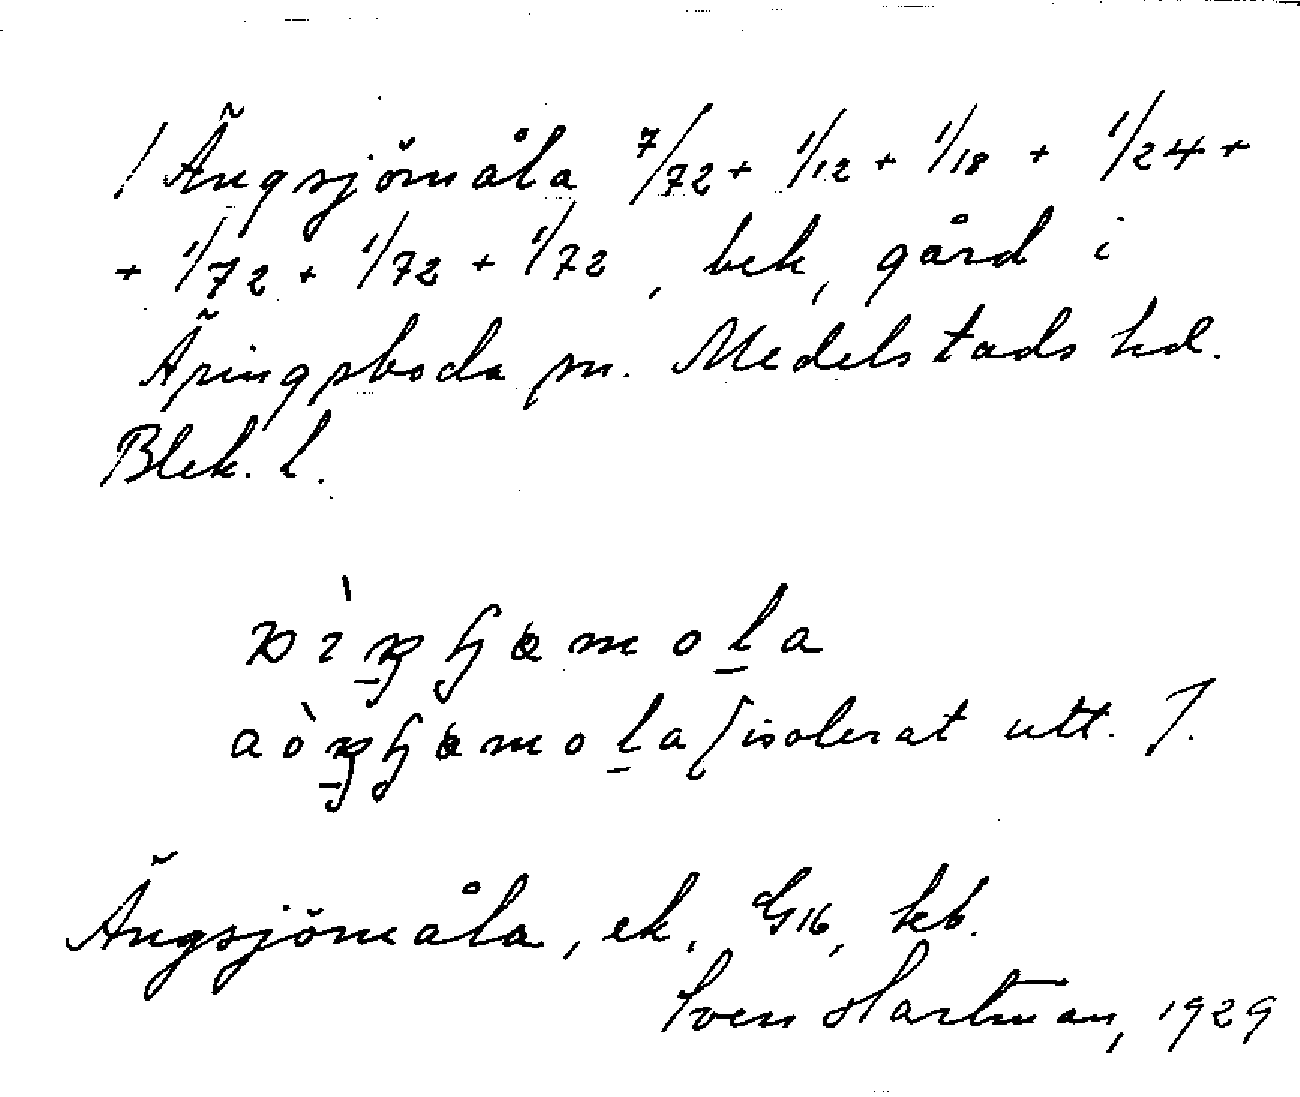 / Ängsjömåla 7/72 + 1/12 + 1/18 + 1/24 +
+ 1/72 + 1/72 + 1/72, bek, gård i
Äringsboda sn. Medelstads hd.
Blek. l.
mola
mola (isolerat utt.).
Ängsjömåla, ek, G16, kb.
Sven Hartman, 1929